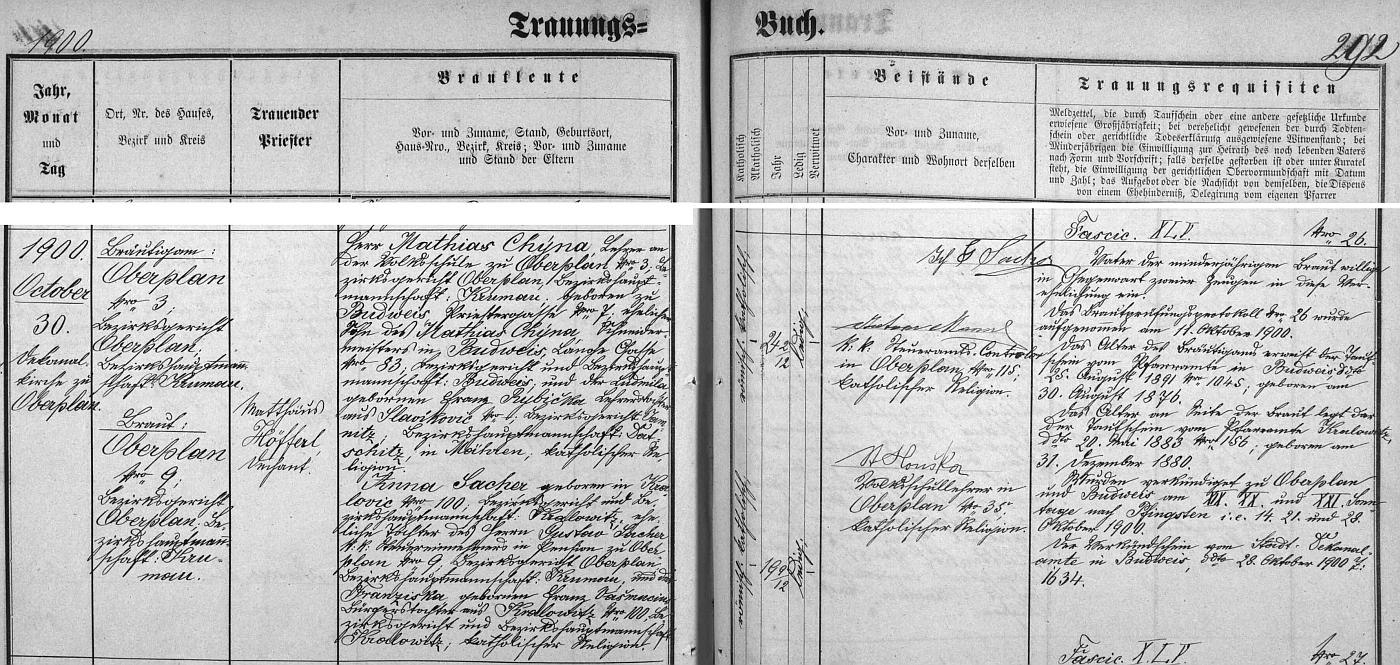 1900.
Trauungs=
Buch.
292
Jahr,
Monat
und
Tag
Ort, Nr. des Hauses,
Bezirk und Kreis
Trauender
Priester
Brautleute
Vor- und Zuname, Stand, Geburtsort,
Haus-Nro., Bezirk, Kreis; Vor- und Zuname
und Stand der Eltern
Katholisch
Akatholisch
Jahr
Ledig
Verwitwet
Beistände
Vor- und Zuname,
Charakter und Wohnort derselben
Trauungsrequisiten
Meldzettel, die durch Taufschein oder eine andere gesetzliche Urkunde
erwiesene Großjährigkeit; bei verehelicht gewesenen der durch Todten-
schein oder gerichtliche Todeserklärung ausgewiesene Witwenstand; bei
Minderjährigen die Einwilligung zur Heirath des noch lebenden Vaters
nach Form und Vorschrift; falls derselbe gestorben ist oder unter Kuratel
steht, die Einwilligung der gerichtlichen Obervormundschaft mit Datum
und Zahl; das Aufgebot oder die Nachsicht von demselben, die Dispens
von einem Ehehinderniß, Delegirung vom eigenen Pfarrer
1900.
October
30.
Dekanal-
kirche zu
Oberplan.
Bräutigam:
Oberplan
Nro 3,
Bezirksgericht
Oberplan,
Bezirkshauptmann-
schaft: Krumau.
Braut:
Oberplan
Nro 9,
Bezirksgericht
Oberplan, Be-
zirkshauptman-
schaft: Kru-
mau.
Matthäus
Höfferl
Dechant.
Herr Mathias Chýna, Lehrer an
der Volksschule zu Oberplan Nro 3, Be-
zirksgericht Oberplan, Bezirkshaupt-
mannschaft: Krumau, geboren zu
Budweis, Priestergasse Nro 7, ehelicher
Sohn des Mathias Chýna, Schneider-
meisters in Budweis, Lange Gasse
Nro 83, Bezirksgericht und Bezirkshaupt-
mannschaft: Budweis, und der Ludmila
gebornen Franz Kubička, Lehrerstochter
aus Slavikovic Nro 1, Bezirksgericht
Bezirkshauptmannschaft: Dat-
schitz, in Mähren, katholischer Re-
ligion.
Anna Sacher geboren in Kra-
lovic Nro 100, Bezirksgericht und Be-
zirkshauptmannschaft: Kralowitz, ehe-
liche Tochter des Herrn Gustav Sacher
k. k. Steuereinnehmers in Pension zu Ober-
plan Nro 9, Bezirksgericht Oberplan,
Bezirkshauptmannschaft: Krumau, und der
Franziska, gebornen Franz
Bürgerstochter aus Kralowitz Nro 100, Be-
zirksgericht und Bezirkshauptmannschaft
Kralowitz, katholischer Religion.
römisch-katholisch
24 2/12
ledig
römisch-katholisch
19 9/12
ledig
k. k. Steueramts-Controlor
in Oberplan Nro 115,
katholischer Religion.
Houška
Volksschullehrer in
Oberplan Nro 35
katholischer Religion.
Fascic. XLV. Nro 26.
Ich G Sacher
Vater der minderjährigen Braut willige
in Gegenwart zweier Zeugen in diese Ver-
ehelichung ein.
Das Brautprüfungsprotokoll Nro 26 wurde
aufgenommen am 11. Oktober 1900.
Das Alter des Bräutigams erweist der Tauf-
schein vom Pfarramte in Budweis ddto
25. August 1891 Nro 1045; geboren am
30. August 1876.
Das Alter an Seite der Braut legt dar
der Taufschein vom Pfarramte Kralowitz,
ddto 20. Mai 1883 Nro 156, geboren am
31. Dezember 1880.
Wurden verkündiget zu Oberplan
und Budweis am XIX. XX. und XXI. Sonn-
tage nach Pfingsten i. e. 14. 21. und 28.
Oktober 1900.
Der Verkündschein vom Stadt-Dekanal-
amte in Budweis, ddto 28. Oktober 1900 Z.
1634.
Fascic. XLV. Nro 27.